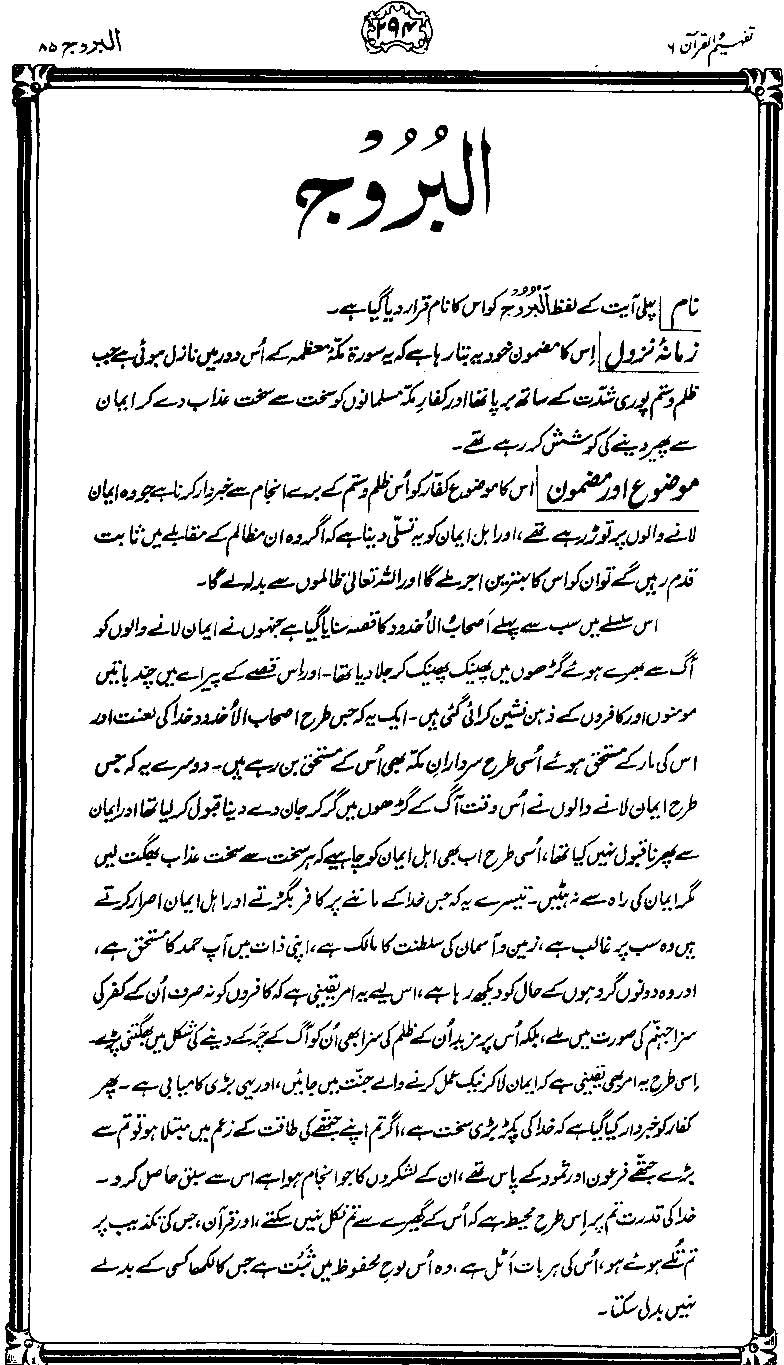 تفہیم القرآن ۶
۲۹۴
البروج ۸۵
البُرُوْج
نام | پہلی آیت کے لفظ اَلْبُرُوْج کو اس کا نام قرار دیا گیا ہے۔
زمانۂ نزول | اِس کا مضمون خود یہ بتا رہا ہے کہ یہ سورۃ مکۂ معظمہ کے اُس دور میں نازل ہوئی ہے جب
ظلم و ستم پوری شدّت کے ساتھ برپا تھا اور کفارِ مکہ مسلمانوں کو سخت سے سخت عذاب دے کر ایمان
سے پھیر دینے کی کوشش کر رہے تھے۔
موضوع اور مضمون | اس کا موضوع کفّار کو اُس ظلم و ستم کے برے انجام سے خبردار کرنا ہے جو وہ ایمان
لانے والوں پر توڑ رہے تھے، اور اہل ایمان کو یہ تسلّی دینا ہے کہ اگر وہ ان مظالم کے مقابلے میں ثابت
قدم رہیں گے تو ان کو اس کا بہترین اجر ملے گا اور اللہ تعالیٰ ظالموں سے بدلہ لے گا۔
اس سلسلے میں سب سے پہلے اَصحابُ الاُخدود کا قصہ سنایا گیا ہے جنہوں نے ایمان لانے والوں کو
آگ سے بھرے ہوئے گڑھوں میں پھینک پھینک کر جلا دیا تھا۔ اور اِس قصے کے پیرائے میں چند باتیں
مومنوں اور کافروں کے ذہن نشین کرائی گئی ہیں۔ ایک یہ کہ جس طرح اصحاب الاُخدود خدا کی لعنت اور
اس کی مار کے مستحق ہوئے اُسی طرح سردارانِ مکّہ بھی اُس کے مستحق بن رہے ہیں۔ دوسرے یہ کہ جس
طرح ایمان لانے والوں نے اُس وقت آگ کے گڑھوں میں گر کر جان دے دینا قبول کر لیا تھا اور ایمان
سے پھرنا قبول نہیں کیا تھا، اُسی طرح اب بھی اہل ایمان کو چاہیے کہ ہر سخت سے سخت عذاب بھگت لیں
مگر ایمان کی راہ سے نہ ہٹیں۔ تیسرے یہ کہ جس خدا کے ماننے پر کافر بگڑتے اور اہل ایمان اصرار کرتے
ہیں وہ سب پر غالب ہے، زمین و آسمان کی سلطنت کا مالک ہے، اپنی ذات میں آپ حمد کا مستحق ہے،
اور وہ دونوں گروہوں کے حال کو دیکھ رہا ہے، اس لیے یہ امر یقینی ہے کہ کافروں کو نہ صرف اُن کے کفر کی
سزا جہنّم کی صورت میں ملے، بلکہ اُس پر مزید اُن کے ظلم کی سزا بھی اُن کو آگ کے چَرکے دینے کی شکل میں بھگتنی پڑے۔
اِسی طرح یہ امر بھی یقینی ہے کہ ایمان لا کر نیک عمل کرنے والے جنّت میں جائیں، اور یہی بڑی کامیابی ہے۔ پھر
کفار کو خبردار کیا گیا ہے کہ خدا کی پکڑ بڑی سخت ہے، اگر تم اپنے جتھے کی طاقت کے زعم میں مبتلا ہو تو تم سے
بڑے جتھے فرعون اور ثمود کے پاس تھے، ان کے لشکروں کا جو انجام ہوا ہے اس سے سبق حاصل کرو۔
خدا کی قدرت تم پر اِس طرح محیط ہے کہ اُس کے گھیرے سے تم نکل نہیں سکتے، اور قرآن، جس کی تکذیب پر
تم تُلے ہوئے ہو، اُس کی ہر بات اَٹل ہے، وہ اُس لوحِ محفوظ میں ثَبت ہے جس کا لکھا کسی کے بدلے
نہیں بدل سکتا۔